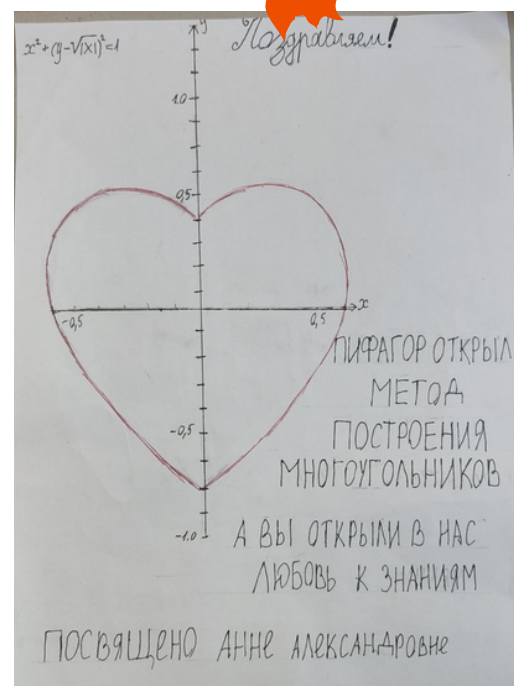 x²+(y-√|x|)²=1
Поздравляем!
y
1.0
0,5
x
-0,5
0,5
ПИФАГОР ОТКРЫЛ
МЕТОД
ПОСТРОЕНИЯ
МНОГОУГОЛЬНИКОВ
-0,5
-1.0
А ВЫ ОТКРЫЛИ В НАС
ЛЮБОВЬ К ЗНАНИЯМ
ПОСВЯЩЕНО АННЕ АЛЕКСАНДРОВНЕ